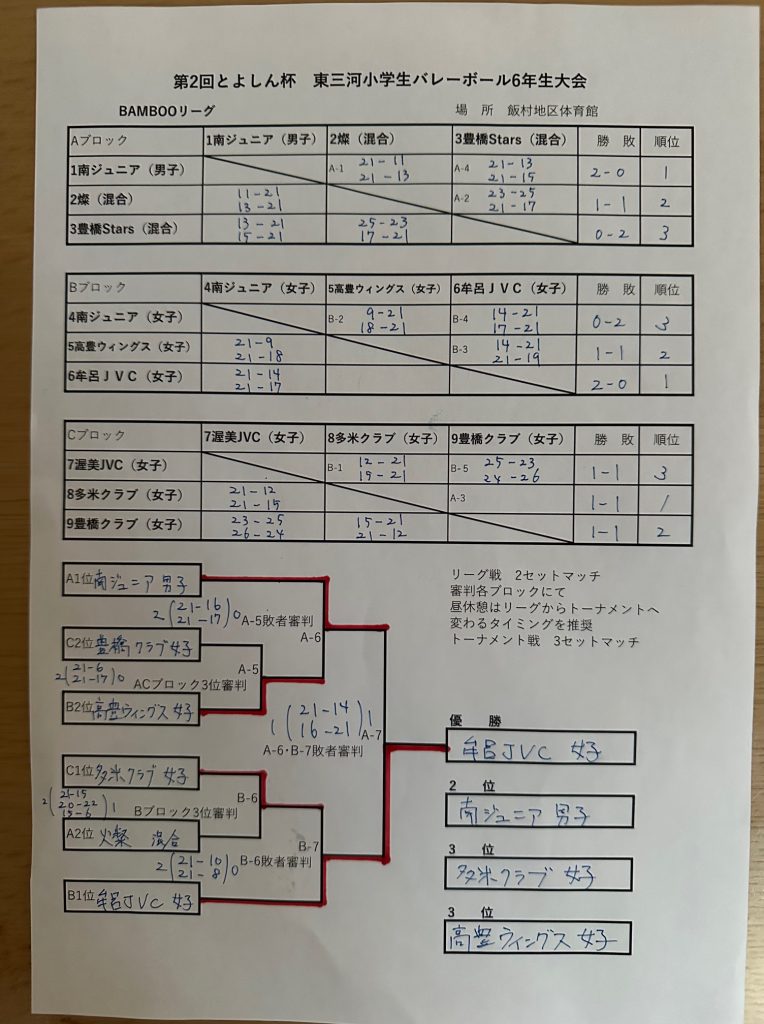 第2回とよしん杯　東三河小学生バレーボール6年生大会
BAMBOOリーグ　場　所　飯村地区体育館
Aブロック　1南ジュニア（男子）　2燦（混合）　3豊橋Stars（混合）　勝　敗　順位
1南ジュニア（男子）　A-1　21-11　21-13　A-4　21-13　21-15　2-0　1
2燦（混合）　11-21　13-21　A-2　23-25　21-17　1-1　2
3豊橋Stars（混合）　13-21　15-21　25-23　17-21　0-2　3
Bブロック　4南ジュニア（女子）　5高豊ウィングス（女子）　6牟呂ＪＶＣ（女子）　勝　敗　順位
4南ジュニア（女子）　B-2　9-21　18-21　B-4　14-21　17-21　0-2　3
5高豊ウィングス（女子）　21-9　21-18　B-3　14-21　21-19　1-1　2
6牟呂ＪＶＣ（女子）　21-14　21-17　2-0　1
Cブロック　7渥美JVC（女子）　8多米クラブ（女子）　9豊橋クラブ（女子）　勝　敗　順位
7渥美JVC（女子）　B-1　12-21　15-21　B-5　25-23　24-26　1-1　3
8多米クラブ（女子）　21-12　21-15　A-3　1-1　1
9豊橋クラブ（女子）　23-25　26-24　15-21　21-12　1-1　2
A1位　南ジュニア 男子
2（21-16　21-17）0　A-5敗者審判
A-6
C2位　豊橋クラブ 女子
A-5
2（21-6　21-17）0　ACブロック3位審判
B2位　高豊ウィングス 女子
1（21-14　16-21）1　A-7
A-6・B-7敗者審判
C1位　多米クラブ 女子
B-6
2（21-15　20-22　15-6）1　Bブロック3位審判
A2位　火燦　混合
B-7
2（21-10　21-8）0　B-6敗者審判
B1位　牟呂JVC 女子
リーグ戦　2セットマッチ
審判各ブロックにて
昼休憩はリーグからトーナメントへ
変わるタイミングを推奨
トーナメント戦　3セットマッチ
優　勝
牟呂JVC 女子
2　位
南ジュニア 男子
3　位
多米クラブ 女子
3　位
高豊ウィングス 女子